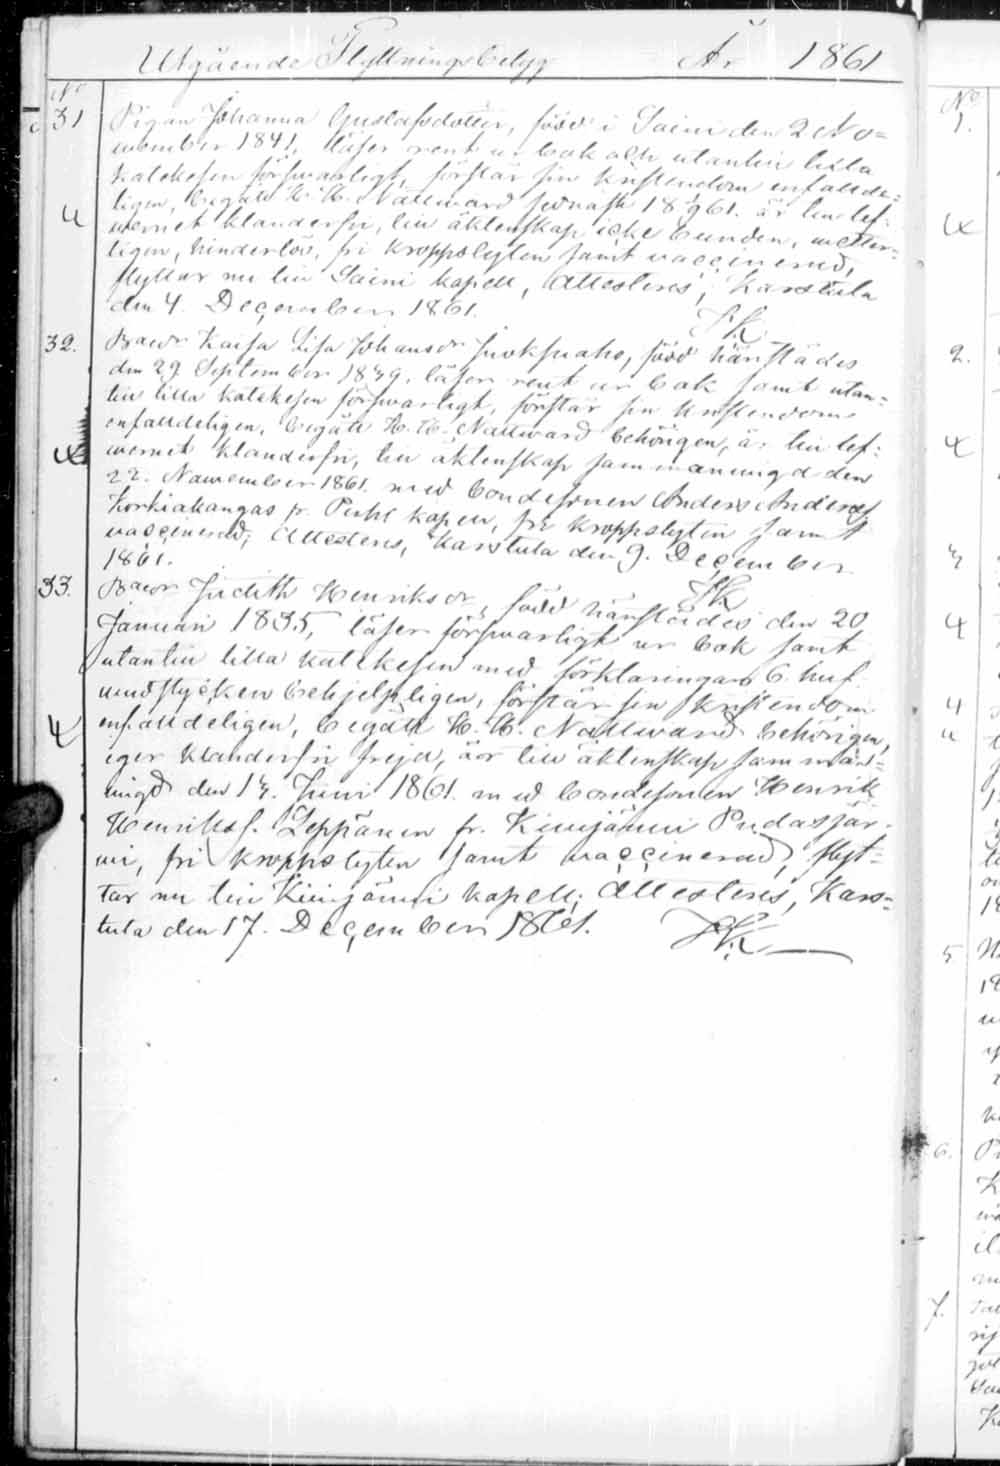 Utgående Flyttningsbetyg År 1861
No
31 Pigan Johanna Gustafsdotter, född i Saini den 2 No=
vember 1841, läser rent ur bok och utantill lilla
katekesen försvarligt, förstår sin kristendom enfaldde=
ligen, begått H. H. Nattvard sednast 18 61. är till lef-
vernet klanderfri, till äktenskap icke bunden, veter=
ligen, hinderlös, fri kroppslyten samt vaccinerad,
flyttar nu till Saini kapell, Attesteras; Karstula
den 4. December 1861.
32. Kaisa Lisa Johansdr född härstädes
den 29 September 1839, läser rent ur bok samt utan=
till lilla katekesen försvarligt, förstår sin kristendom
enfalldeligen, begått H. H. Nattvard behörigen, är till lef=
vernet klanderfri, till äktenskap sammanvigd den
22. November 1861. med bondesonen Anders Andersf
Korkiakangas fr. Perho kapell, fri kroppslyten samt
vaccinerad; Attesteras, Karstula den 9. December
1861.
33. Judith Henriksdr, född härstädes den 20
Januari 1835, läser försvarligt ur bok samt
utantill lilla katekesen med förklaringars 6. huf
vudstycken behjelpligen, förstår sin kristendom
enfalldeligen, begått H. H. Nattvard behörigen,
eger klanderfri frejd, är till äktenskap samman=
vigd den 14. Juni 1861. med bondesonen Henrik
Henriksf. Leppänen fr. Kivijärvi Pudasjär-
vi, fri kroppslyten samt vaccinerad, flyt=
tar nu till Kivijärvi kapell; Attesteras, Kars=
tula den 17. December 1861.
No
1.
2.
3
4
5
6.
7.